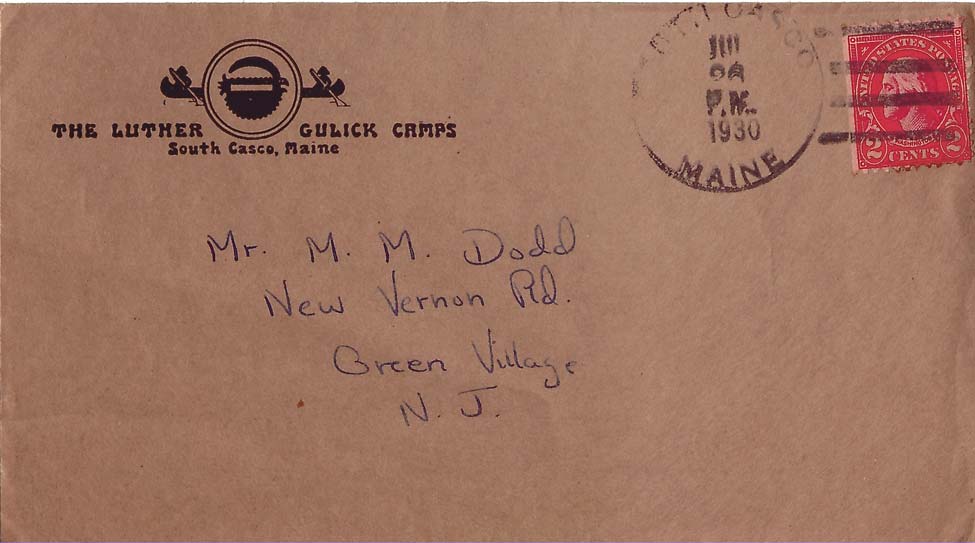 THE LUTHER GULICK CAMPS
South Casco, Maine
CASCO
P.M.
1930
MAINE
UNITED STATES POSTAGE
2 CENTS 2
Mr. M. M. Dodd
New Vernon Rd.
Green Village
N. J.